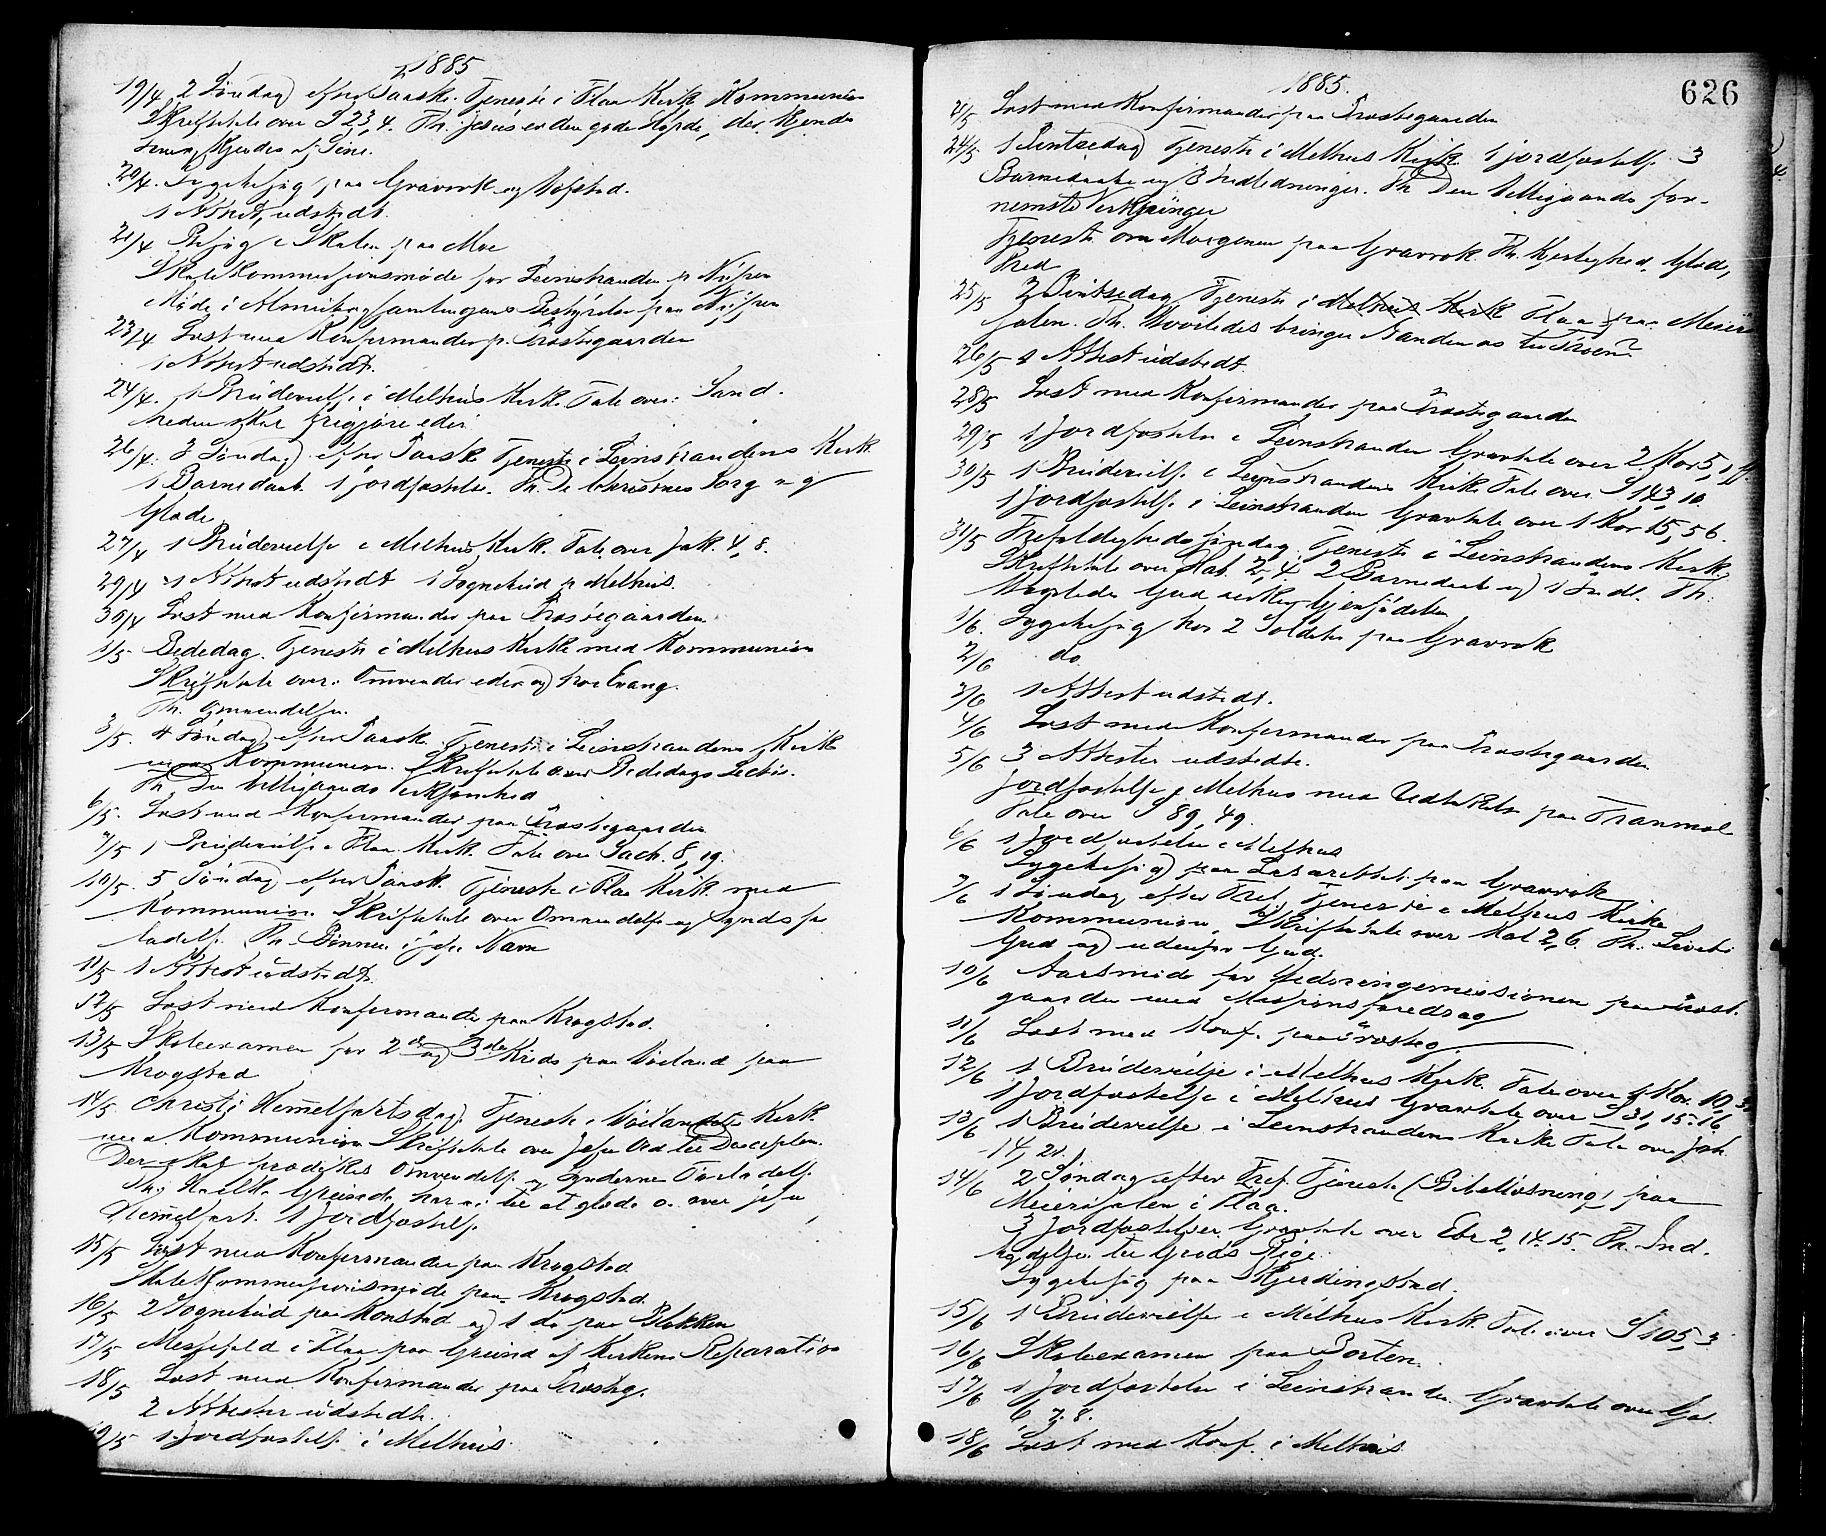 1885
19/4 2 Søndag efter Paaske. Tjeneste i Flaa Kirke Kommunion
Skriftetale over S 23, 4. Th. Jesus er den gode Hyrde, der kjender
og kjendes af Sine.
20/4. Sygebesøg paa Gravrok og Hofstad.
1 Attest udstedt.
21/4 Besøg i Skolen paa Moe
Skolekommissionsmøde for Leinstranden p. Nypen
Møde i Almuebogsamlingens Bestyrelse paa Nypen
23/4 Læst med Konfirmander p. Præstegaarden
1 Attest udstedt.
24/4. 1 Brudevielse i Melhus Kirke. Tale over: Sand-
heden skal frigjøre eder
26/4. 3 Søndag efter Paaske Tjeneste i Leinstrandens Kirke
1 Barnedaab. 1 Jordfæstelse. Th. De Christnes Sorg og
Glæde
27/4 1 Brudevielse i Melhus Kirke. Tale over Jak. 4, 8.
29/4 1 Attest udstedt 1 Sognebud p. Melhus.
30/4 Læst med Konfirmander paa Præstegaarden.
1/5 Bededag. Tjeneste i Melhus Kirke med Kommunion
Skriftetale over: Omvender eder og tror Evang.
Th. Omvendelsen.
3/5. 4 Søndag efter Paaske. Tjeneste i Leinstrandens Kirke
med Kommunion. Skriftetale over Bededags Lectie.
Th. Den Helligaands Virksomhed
6/5. Læst med Konfirmander paa Præstegaarden
7/5 1 Brudevielse i Flaa Kirke. Tale over Sach. 8, 19.
10/5. 5 Søndag efter Paaske. Tjeneste i Flaa Kirke med
Kommunion. Skriftetale over Omvendelse og Synds for-
ladelse. Th. Bønnen i Jesu Navn
11/5 1 Attest udstedt.
12/5 Læst med Konfirmander paa Krogstad.
13/5 Skoleexamen for 2de og 3die Kreds paa Høiland paa
Krogstad
14/5 Christi Himmelfartsdag. Tjeneste i Høilandets Kirke
med Kommunion Skriftetale over Jesu Ord til Disciplene.
Der skal prædikes Omvendelse og Syndernes Forladelse.
Th. Hvilke Grunde har vi til at glæde os over Jesu
Himmelfart. 1 Jordfæstelse.
15/5 Læst med Konfirmander paa Krogstad
Skolekommissionsmøde paa Krogstad.
16/5 2 Sognebud paa Konstad og 1 do paa Blokken
17/5 Messefald i Flaa paa Grund af Kirkens Reparation
18/5 Læst med Konfirmander paa Præsteg.
2 Attester udstedt.
19/5 1 Jordfæstelse i Melhus.
626
1885.
21/5 Læst med Konfirmander paa Præstegaarden
24/5 1 Pintsedag Tjeneste i Melhus Kirke 1 Jordfæstelse. 3
Barnedaab og 3 Indledninger. Th. Den Helligaands for-
nemste Virkninger
Tjeneste om Morgenen paa Gravrok. Th. Kjerlighed, Glæde,
Fred
25/5 2 Pintsedag. Tjeneste i Melhus Kirke Flaa paa Meieri
salen. Th. Hvorledes bringer Aanden os til Troen?
26/5 1 Attest udstedt.
28/5 Læst med Konfirmander paa Præstegaarden
29/5 1 Jordfæstelse i Leinstranden Gravtale over 2 Kor 5, 1 ff.
30/5 1 Brudevielse i Leinstrandens Kirke Tale over S 143, 10
1 Jordfæstelse i Leinstranden Gravtale over 1 Kor 15, 56.
31/5 Trefoldighedssøndag. Tjeneste i Leinstrandens Kirke.
Skriftetale over Hab. 2, 4. 2 Barnedaab og 1 Indl. Th.
Hvorledes Gud virker Gjenfødelsen
1/6. Sygebesøg hos 2 Soldater paa Gravrok
2/6 do
3/6 1 Attest udstedt.
4/6 Læst med Konfirmander paa Præstegaarden
5/6 3 Attester udstedte.
Jordfæstelse i Melhus med Udtale paa Tranmæl
Tale over S 89, 49.
6/6 1 Jordfæstelse i Melhus
Sygebesøg paa Lazarettet paa Gravrok
7/6 1 Søndag efter Tref. Tjeneste i Melhus Kirke
Kommunion. Skriftetale over Kol 2, 6. Th. Livet i
Gud og udenfor Gud.
10/6 Aarsmøde for Hedningemissionen paa Præst.
gaarden med Missionsforedrag
11/6 Læst med Konf. paa Præsteg.
12/6 1 Brudevielse i Melhus Kirke. Tale over 1 Kor. 10, 31
1 Jordfæstelse i Melhus Gravtale over S 31, 15-16
13/6 1 Brudevielse i Leinstrandens Kirke Tale over Joh.
14, 21.
14/6 2 Søndag efter Tref. Tjeneste (Bibellæsning) paa
Meierisalen i Flaa.
3 Jordfæstelser. Gravtale over Ebr 2, 14. 15. Th. Ind-
bydelsen til Guds Rige.
Sygebesøg paa Skjerdingstad.
15/6 1 Brudevielse i Melhus Kirke. Tale over S 105, 3
16/6 Skoleexamen paa Porten.
17/6 1 Jordfæstelse i Leinstranden Gravtale over Gal.
6 7. 8.
18/6 Læst med Konf. i Melhus